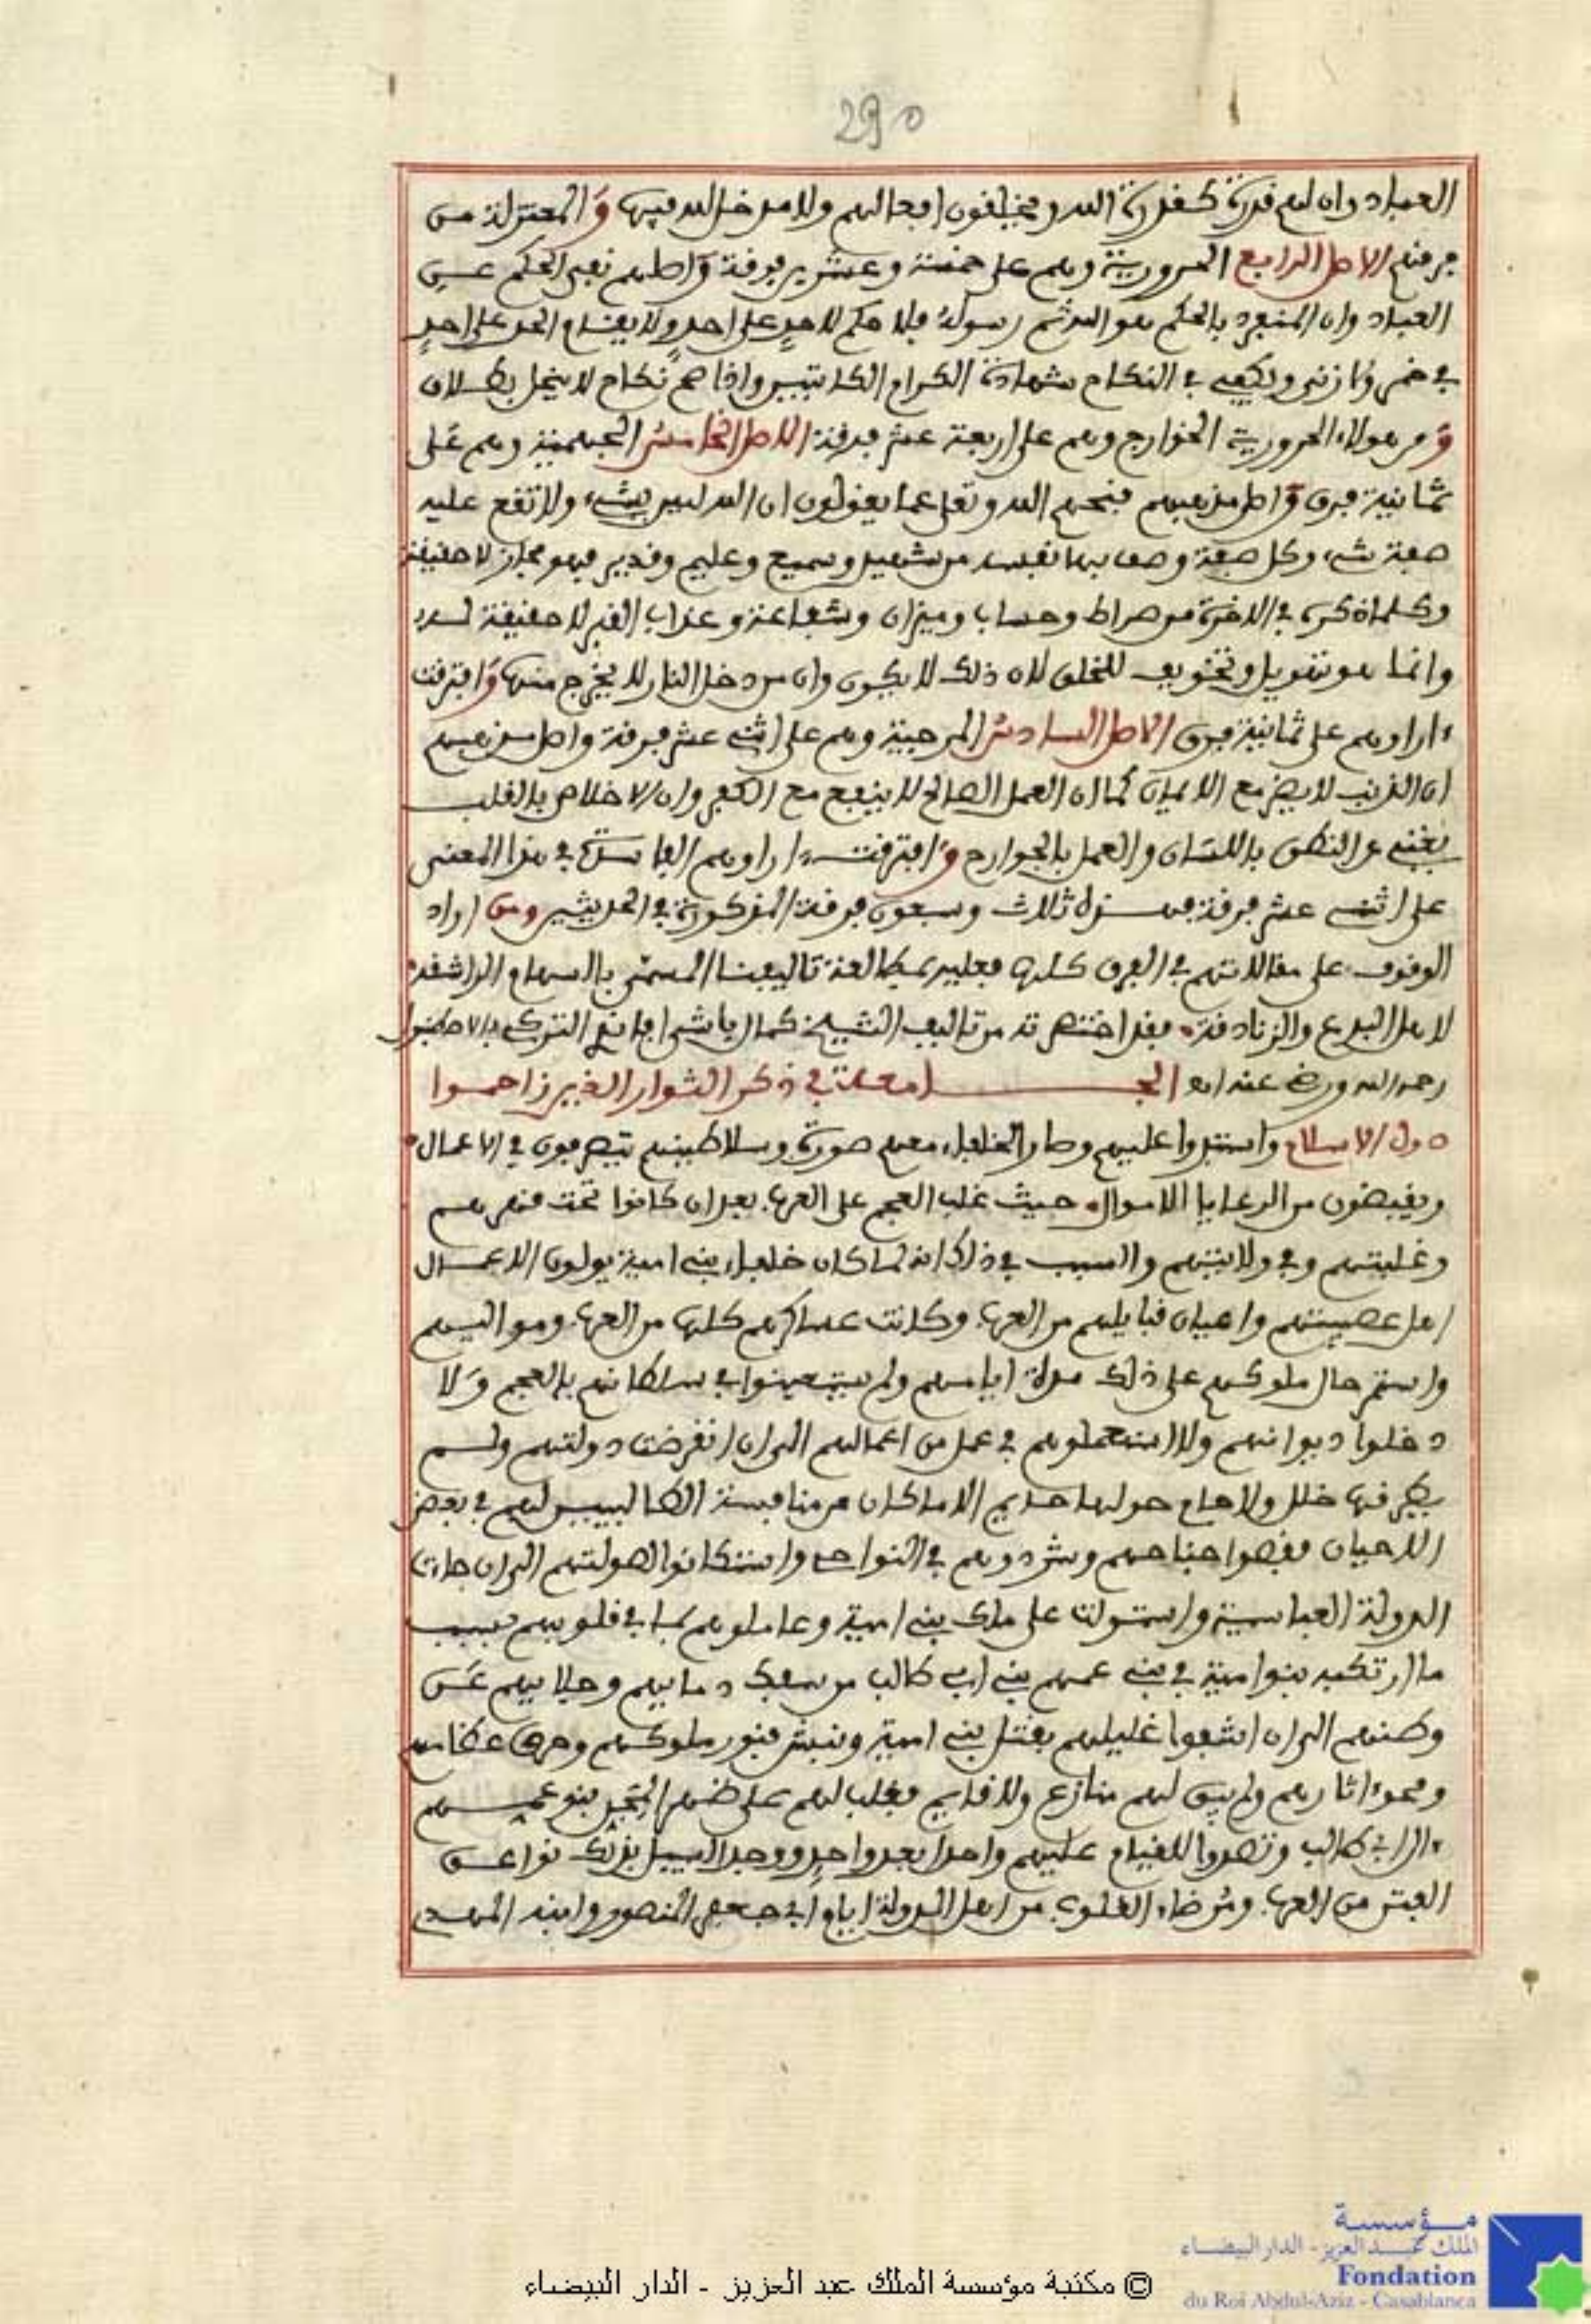 290
العباد وان لهم قدرة كقدرة الله ويخلقون افعالهم ولا مدخل لله فيها والمعتزلة من
فرقهم الاصل الرابع الحرورية وهم على خمسة وعشرين فرقة واصلهم نفي الحكم عن
العباد وان المنفرد بالحكم هو الله ثم رسوله فلا حكم لاحد على احد ولا يقام الحد على احد
في خمر ولا زنى ويكفي في النكاح شهادة الكرام الكاتبين واذا صح نكاح لا ينحل بطلاق
ومن هولاء الحرورية الخوارج وهم على اربعة عشر فرقة الاصل الخامس الجهمية وهم على
ثمانية فرق واصل مذهبهم قبحهم الله وتعلى عما يقولون ان الله ليس بشيء ولا تقع عليه
صفة شيء وكل صفة وصف بها نفسه من شهيد وسميع وعليم وقدير فهو مجاز لا حقيقة
وكلما ذكر في الاخرة من صراط وحساب وميزان وشفاعة وعذاب القبر لا حقيقة له
وانما هو تهويل وتخويف للخلق لان ذلك لا يكون وان من دخل النار لا يخرج منها وافترقت
ءاراوهم على ثمانية فرق الاصل السادس المرجية وهم على اثنى عشر فرقة واصل مذهبهم
ان الذنب لا يضر مع الايمان كما ان العمل الصالح لا ينفع مع الكفر وان الاخلاص بالقلب
يغني عن النطق باللسان والعمل بالجوارح وافترقت ءاراوهم الفاسدة في هذا المعنى
على اثنى عشر فرقة فهذه ثلاث وسبعون فرقة المذكورة في الحديث ومن اراد
الوقوف على مقالاتهم في الفرق كلها فعليه بمطالعة تاليفنا المسمى بالسهام الراشقة
لاهل البدع والزنادقة فقد اختصرته من تاليف الشيخ كمال باشا افندي التركي بالاصطنبول
رحمه الله ورضي عنه اهـ الجامعة في ذكر الثوار الذين زاحموا
دول الاسلام واستبدوا عليهم وصار الخلفاء معهم صورة وسلاطينهم يتصرفون في الاعمال
ويقبضون من الرعايا الاموال حيث غلب العجم على العرب بعد ان كانوا تحت قهرهم
وغلبتهم وفي ولايتهم والسبب في ذلك انه لما كان خلفاء بني امية يولون الاعمال
اهل عصبيتهم واعيان قبايلهم من العرب وكانت عساكرهم كلها من العرب ومواليهم
واستمر حال ملوكهم على ذلك مدة ايامهم ولم يستعينوا في سلطانهم بالعجم ولا
دخلوا ديوانهم ولا استعملوهم في عمل من اعمالهم الى ان انقرضت دولتهم ولم
يطرقها خلل ولا حام حولها حايم الا ما كان من منافسة الطالبيين لهم في بعض
الاحيان فقصوا جناحهم وشردوهم في النواحي واستكانوا لصولتهم الى ان جاءت
الدولة العباسية واستولت على ملك بني امية وعاملوهم بما في قلوبهم بسبب
ما ارتكبه بنوا امية في بني عمهم بني ابي طالب من سفك دمايهم وجلايهم عن
وطنهم الى ان اشفوا غليلهم بقتل بني امية ونبش قبور ملوكهم وحرق عظامهم
ومحوا اثارهم ولم يبق لهم منازع ولا قايم فقلب لهم على ظهر المجن بنو عمهم
ءال ابي طالب وتصدوا للقيام عليهم واحدا بعد واحد ووجد السبيل بذلك نواعق
الفتن من العرب ومرضاء القلوب من اهل الدولة ايام ابي جعفر المنصور وابنه المهدي
مؤسسة
الملك عبد العزيز - الدار البيضاء
Fondation
du Roi Abdul-Aziz - Casablanca
© مكتبة مؤسسة الملك عبد العزيز - الدار البيضاء